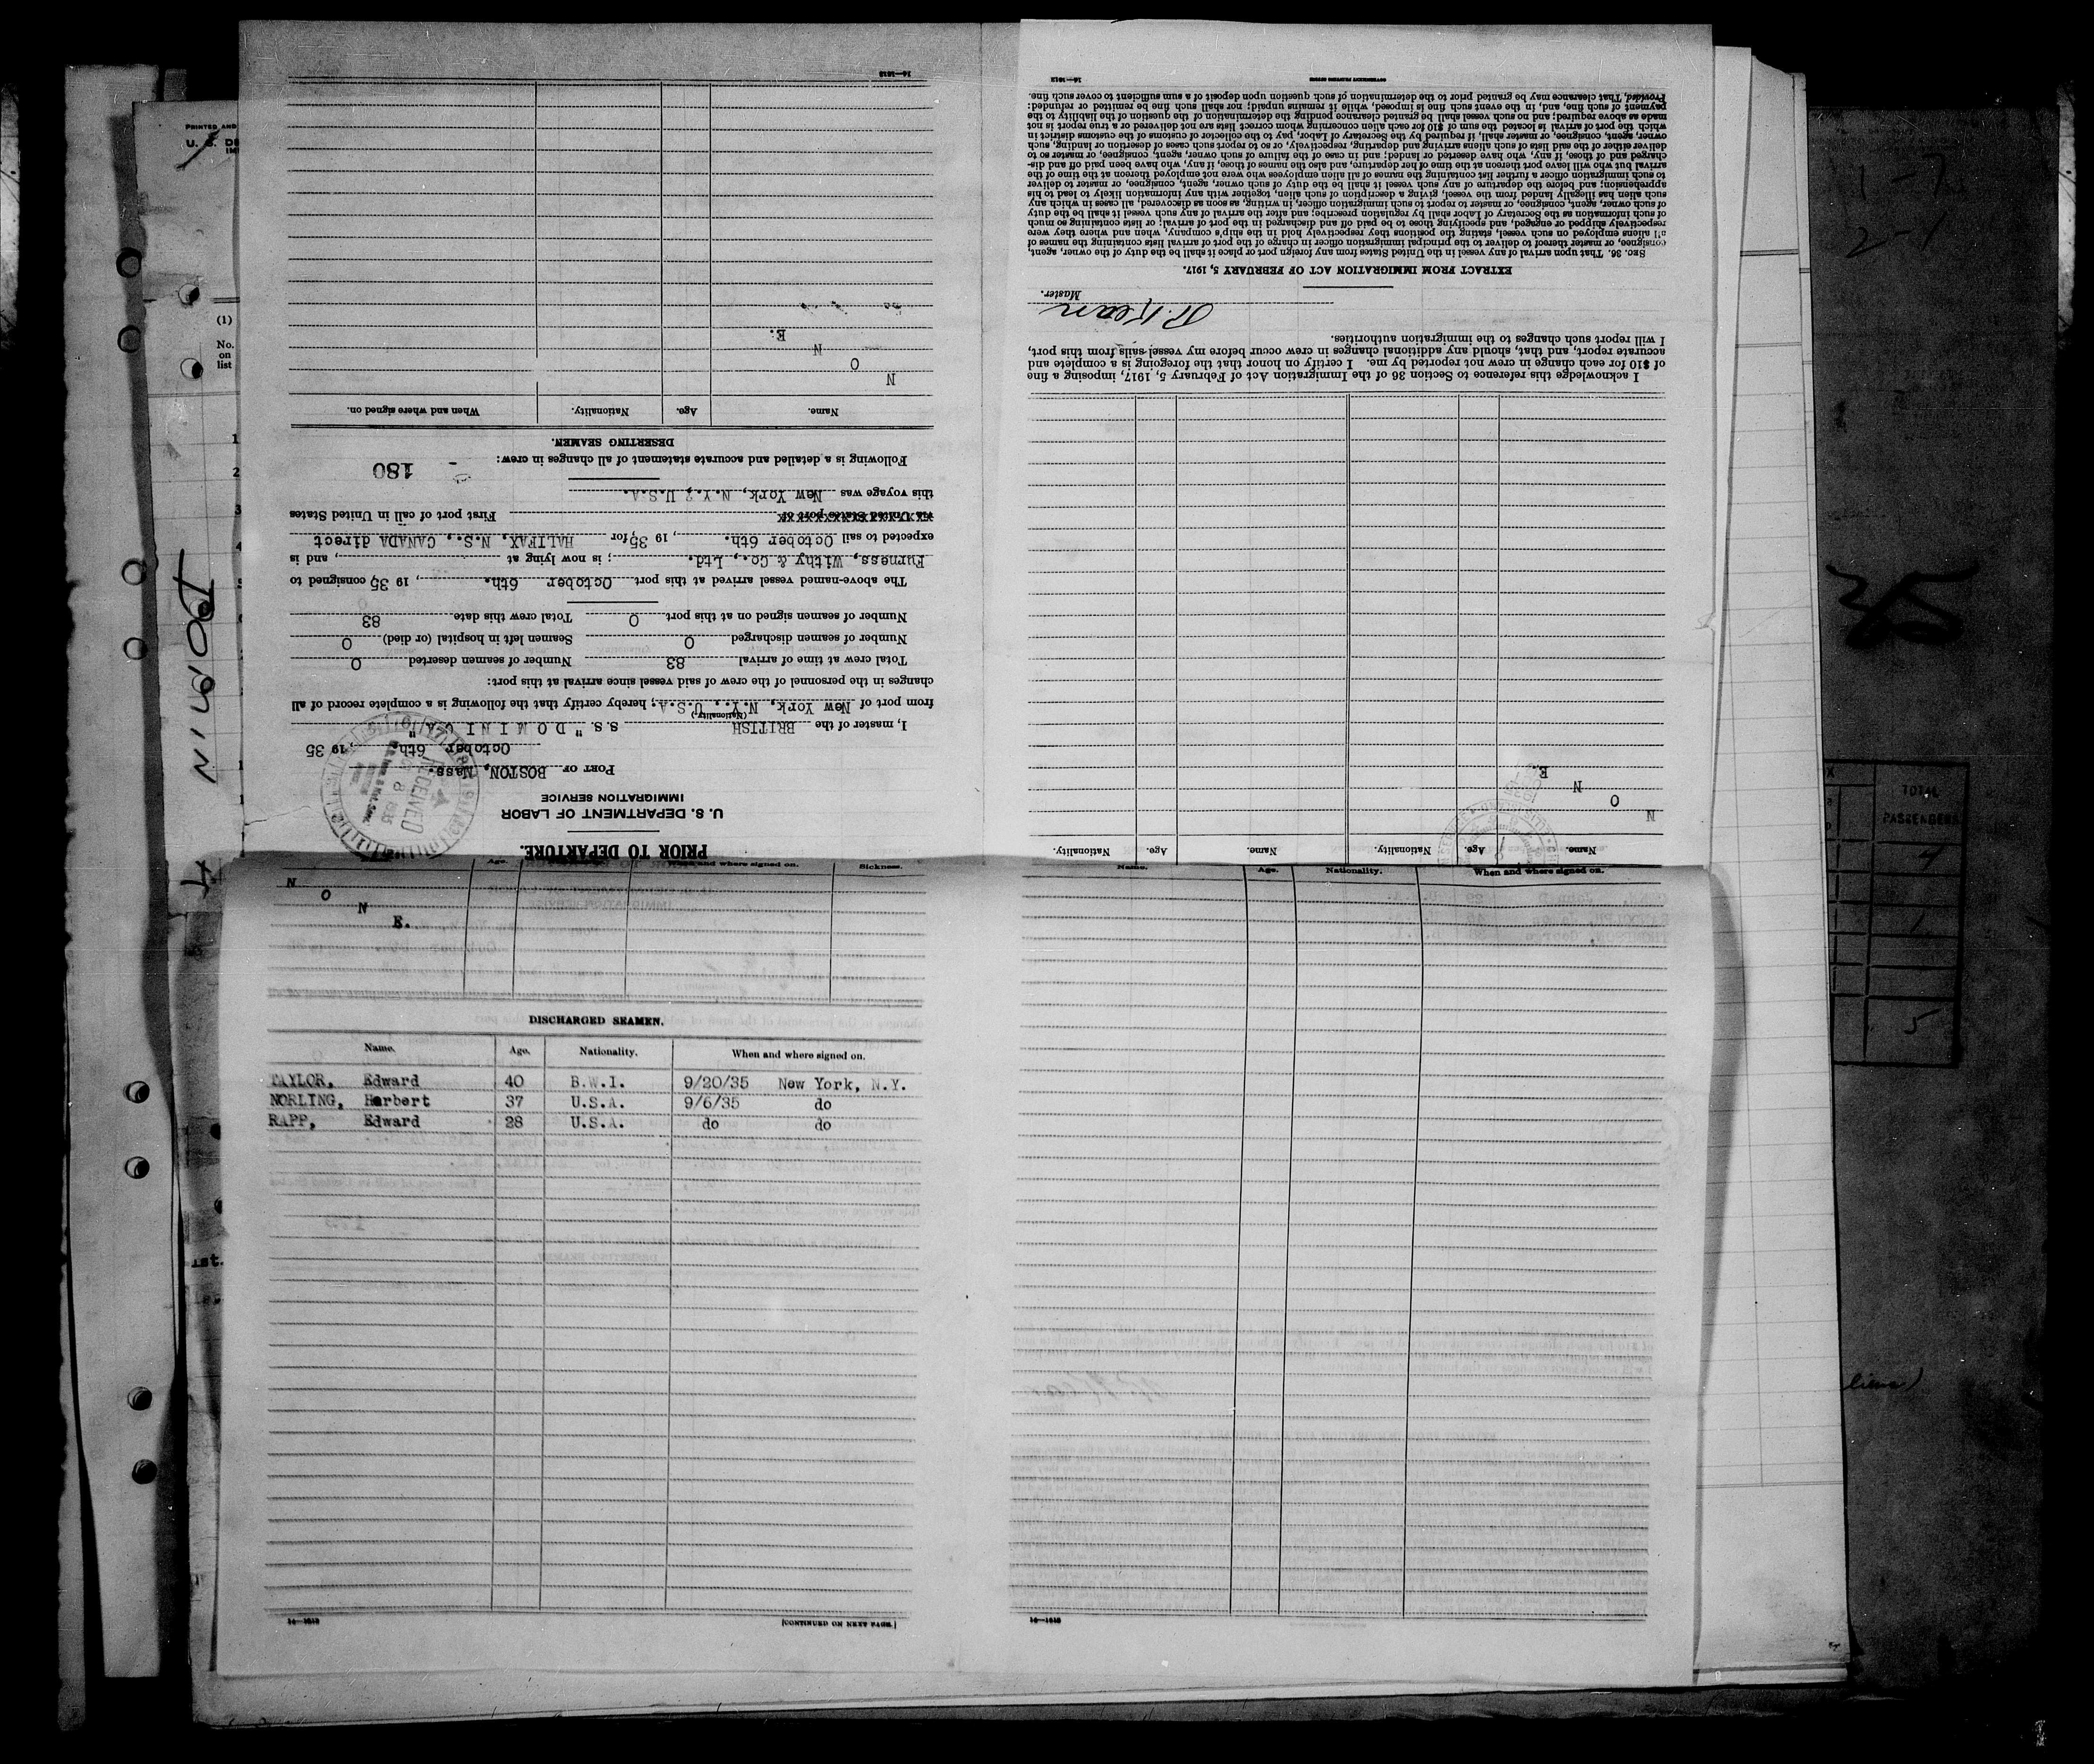 PRIOR TO DEPARTURE.
U. S. DEPARTMENT OF LABOR
IMMIGRATION SERVICE
PORT OF BOSTON, Mass.
October 6th. , 19 35
I, master of the BRITISH s.s "D O M I N I C A"
(Nationality)
from port of New York, N.Y., U.S.A.; hereby certify that the following is a complete record of all
changes in the personnel of the crew of said vessel since arrival at this port:
Total crew at time of arrival 83 Number of seamen deserted 0
Number of seamen discharged 0 Seamen left in hospital (or died) 0
Number of seamen signed on at this port 0 Total crew this date 83
The above-named vessel arrived at this port October 6th. , 19 35 consigned to
Furness, Withy & Co., Ltd. ; is now lying at , and is
expected to sail October 6th. , 19 35 for HALIFAX, N.S., CANADA direct
via United States port of First port of call in United States
this voyage was New York, N.Y., U.S.A.
Following is a detailed and accurate statement of all changes in crew: 180
DESERTING SEAMEN.
Name. Age. Nationality. When and where signed on.
N
O
N
E.
16—1613
Name. Age. Nationality. Name. Age. Nationality.
N
O
N
E.
I acknowledge this reference to Section 36 of the Immigration Act of February 5, 1917, imposing a fine
of $10 for each change in crew not reported by me. I certify on honor that the foregoing is a complete and
accurate report, and that, should any additional changes in crew occur before my vessel sails from this port,
I will report such changes to the immigration authorities.
Master.
EXTRACT FROM IMMIGRATION ACT OF FEBRUARY 5, 1917.
SEC. 36. That upon arrival of any vessel in the United States from any foreign port or place it shall be the duty of the owner, agent,
consignee, or master thereof to deliver to the principal immigration officer in charge of the port of arrival lists containing the names of
all aliens employed on such vessel, stating the positions they respectively hold in the ship's company, when and where they were
respectively shipped or engaged, and specifying those to be paid off and discharged in the port of arrival; or lists containing so much
of such information as the Secretary of Labor shall by regulation prescribe; and after the arrival of any such vessel it shall be the duty
of such owner, agent, consignee, or master to report to such immigration officer, in writing, as soon as discovered, all cases in which any
such alien has illegally landed from the vessel, giving a description of such alien, together with any information likely to lead to his
apprehension; and before the departure of any such vessel it shall be the duty of such owner, agent, consignee, or master to deliver
to such immigration officer a further list containing the names of all alien employees who were not employed thereon at the time of the
arrival but who will leave port thereon at the time of her departure, and also the names of those, if any, who have been paid off and dis-
charged and of those, if any, who have deserted or landed; and in case of the failure of such owner, agent, consignee, or master so to
deliver either of the said lists of such aliens arriving and departing, respectively, or so to report such cases of desertion or landing, such
owner, agent, consignee, or master shall, if required by the Secretary of Labor, pay to the collector of customs of the customs district in
which the port of arrival is located the sum of $10 for each alien concerning whom correct lists are not delivered or a true report is not
made as above required; and no such vessel shall be granted clearance pending the determination of the question of the liability to the
payment of such fine, and, in the event such fine is imposed, while it remains unpaid; nor shall such fine be remitted or refunded:
Provided, That clearance may be granted prior to the determination of such question upon deposit of a sum sufficient to cover such fine.
16—1613 GOVERNMENT PRINTING OFFICE
Age. When and where signed on. Sickness.
N
O
N
E.
DISCHARGED SEAMEN.
Name. Age. Nationality. When and where signed on.
TAYLOR, Edward 40 B.W.I. 9/20/35 New York, N.Y.
NORLING, Herbert 37 U.S.A. 9/6/35 do
RAPP, Edward 28 U.S.A. do do
16—1613 [CONTINUED ON NEXT PAGE.]
Name. Age. Nationality. When and where signed on.
16—1613
PRINTED AND
(1)
No.
on
list
1
2
3
4
RECEIVED
8 1935
TOTAL
PASSENGERS
4
1
5